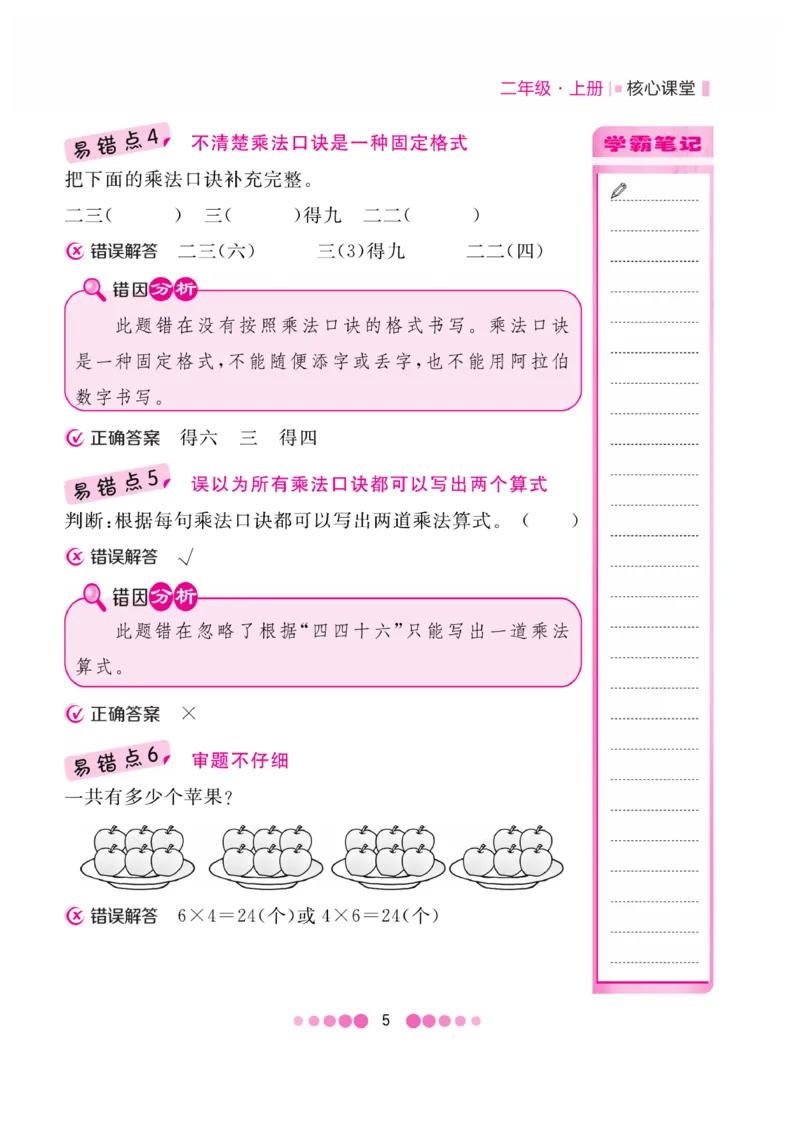 二年级·上册 核心课堂
易错点4 不清楚乘法口诀是一种固定格式
学霸笔记
把下面的乘法口诀补充完整。
二三( ) 三( )得九 二二( )
错误解答 二三(六) 三(3)得九 二二(四)
错因分析
此题错在没有按照乘法口诀的格式书写。乘法口诀
是一种固定格式,不能随便添字或丢字,也不能用阿拉伯
数字书写。
正确答案 得六 三 得四
易错点5 误以为所有乘法口诀都可以写出两个算式
判断:根据每句乘法口诀都可以写出两道乘法算式。( )
错误解答 √
错因分析
此题错在忽略了根据“四四十六”只能写出一道乘法
算式。
正确答案 ×
易错点6 审题不仔细
一共有多少个苹果?
错误解答 6×4=24(个)或 4×6=24(个)
5